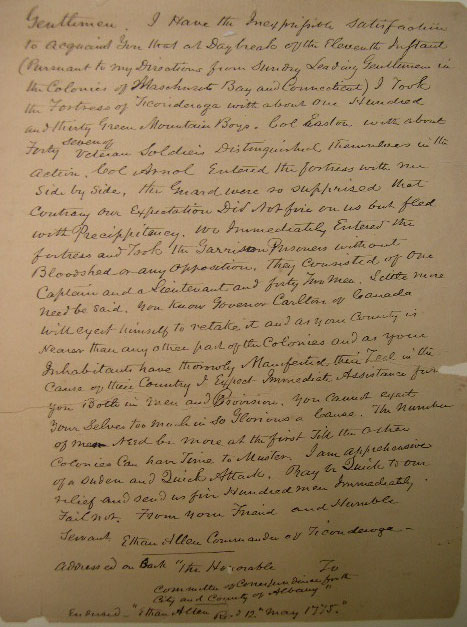 Gentlemen. I Have the Inexpressible Satisfaction
to acquaint You that at Daybreak of the Eleventh Instant
(Pursuant to my Directions from Sundry Leading Gentlemen in
the Colonies of Massachusets Bay and Connecticut) I Took
the Fortress of Ticonderoga with about one Hundred
and thirty Green Mountain Boys. Col Easton with about
Forty seven Veteran Soldiers Distinguished themselves in the
Action. Col Arnol Entered the fortress with me
Side by Side, the Guard were so suprised that
contrary our Expectation Did Not fire on us but fled
with Precippitency. We Immediately Entered the
fortress and Took the Garrison Prisoners without
Bloodshed or any opposition. They consisted of one
Captain and a Lieutenant and forty Two Men. Little more
need be said. You Know Governor Carlton of Canada
Will exert himself to retake it and as your County is
Nearer than any other part of the Colonies and as your
Inhabitants have thoroly Manifested their Zeal in the
Cause of their Country I Expect Immediate Assistance from
you Both in Men and Provision. You cannot exert
Your Selves too much in so Glorious a Cause. The Number
of men Need be more at the first Till the other
Colonies Can have Time to Muster. I am apprehensive
of a Suden and Quick Attack. Pray be Quick to our
relief and send us five Hundred men Immediately
Fail not. From your Friend and Humble
Servant Ethan Allen Commander of Ticonderoga -
Addressed on Back "The Honorable To
Committee of Correspondence for the
City and County of Albany"
Endorsed - "Ethan Allen Rec'd 12th May 1775."